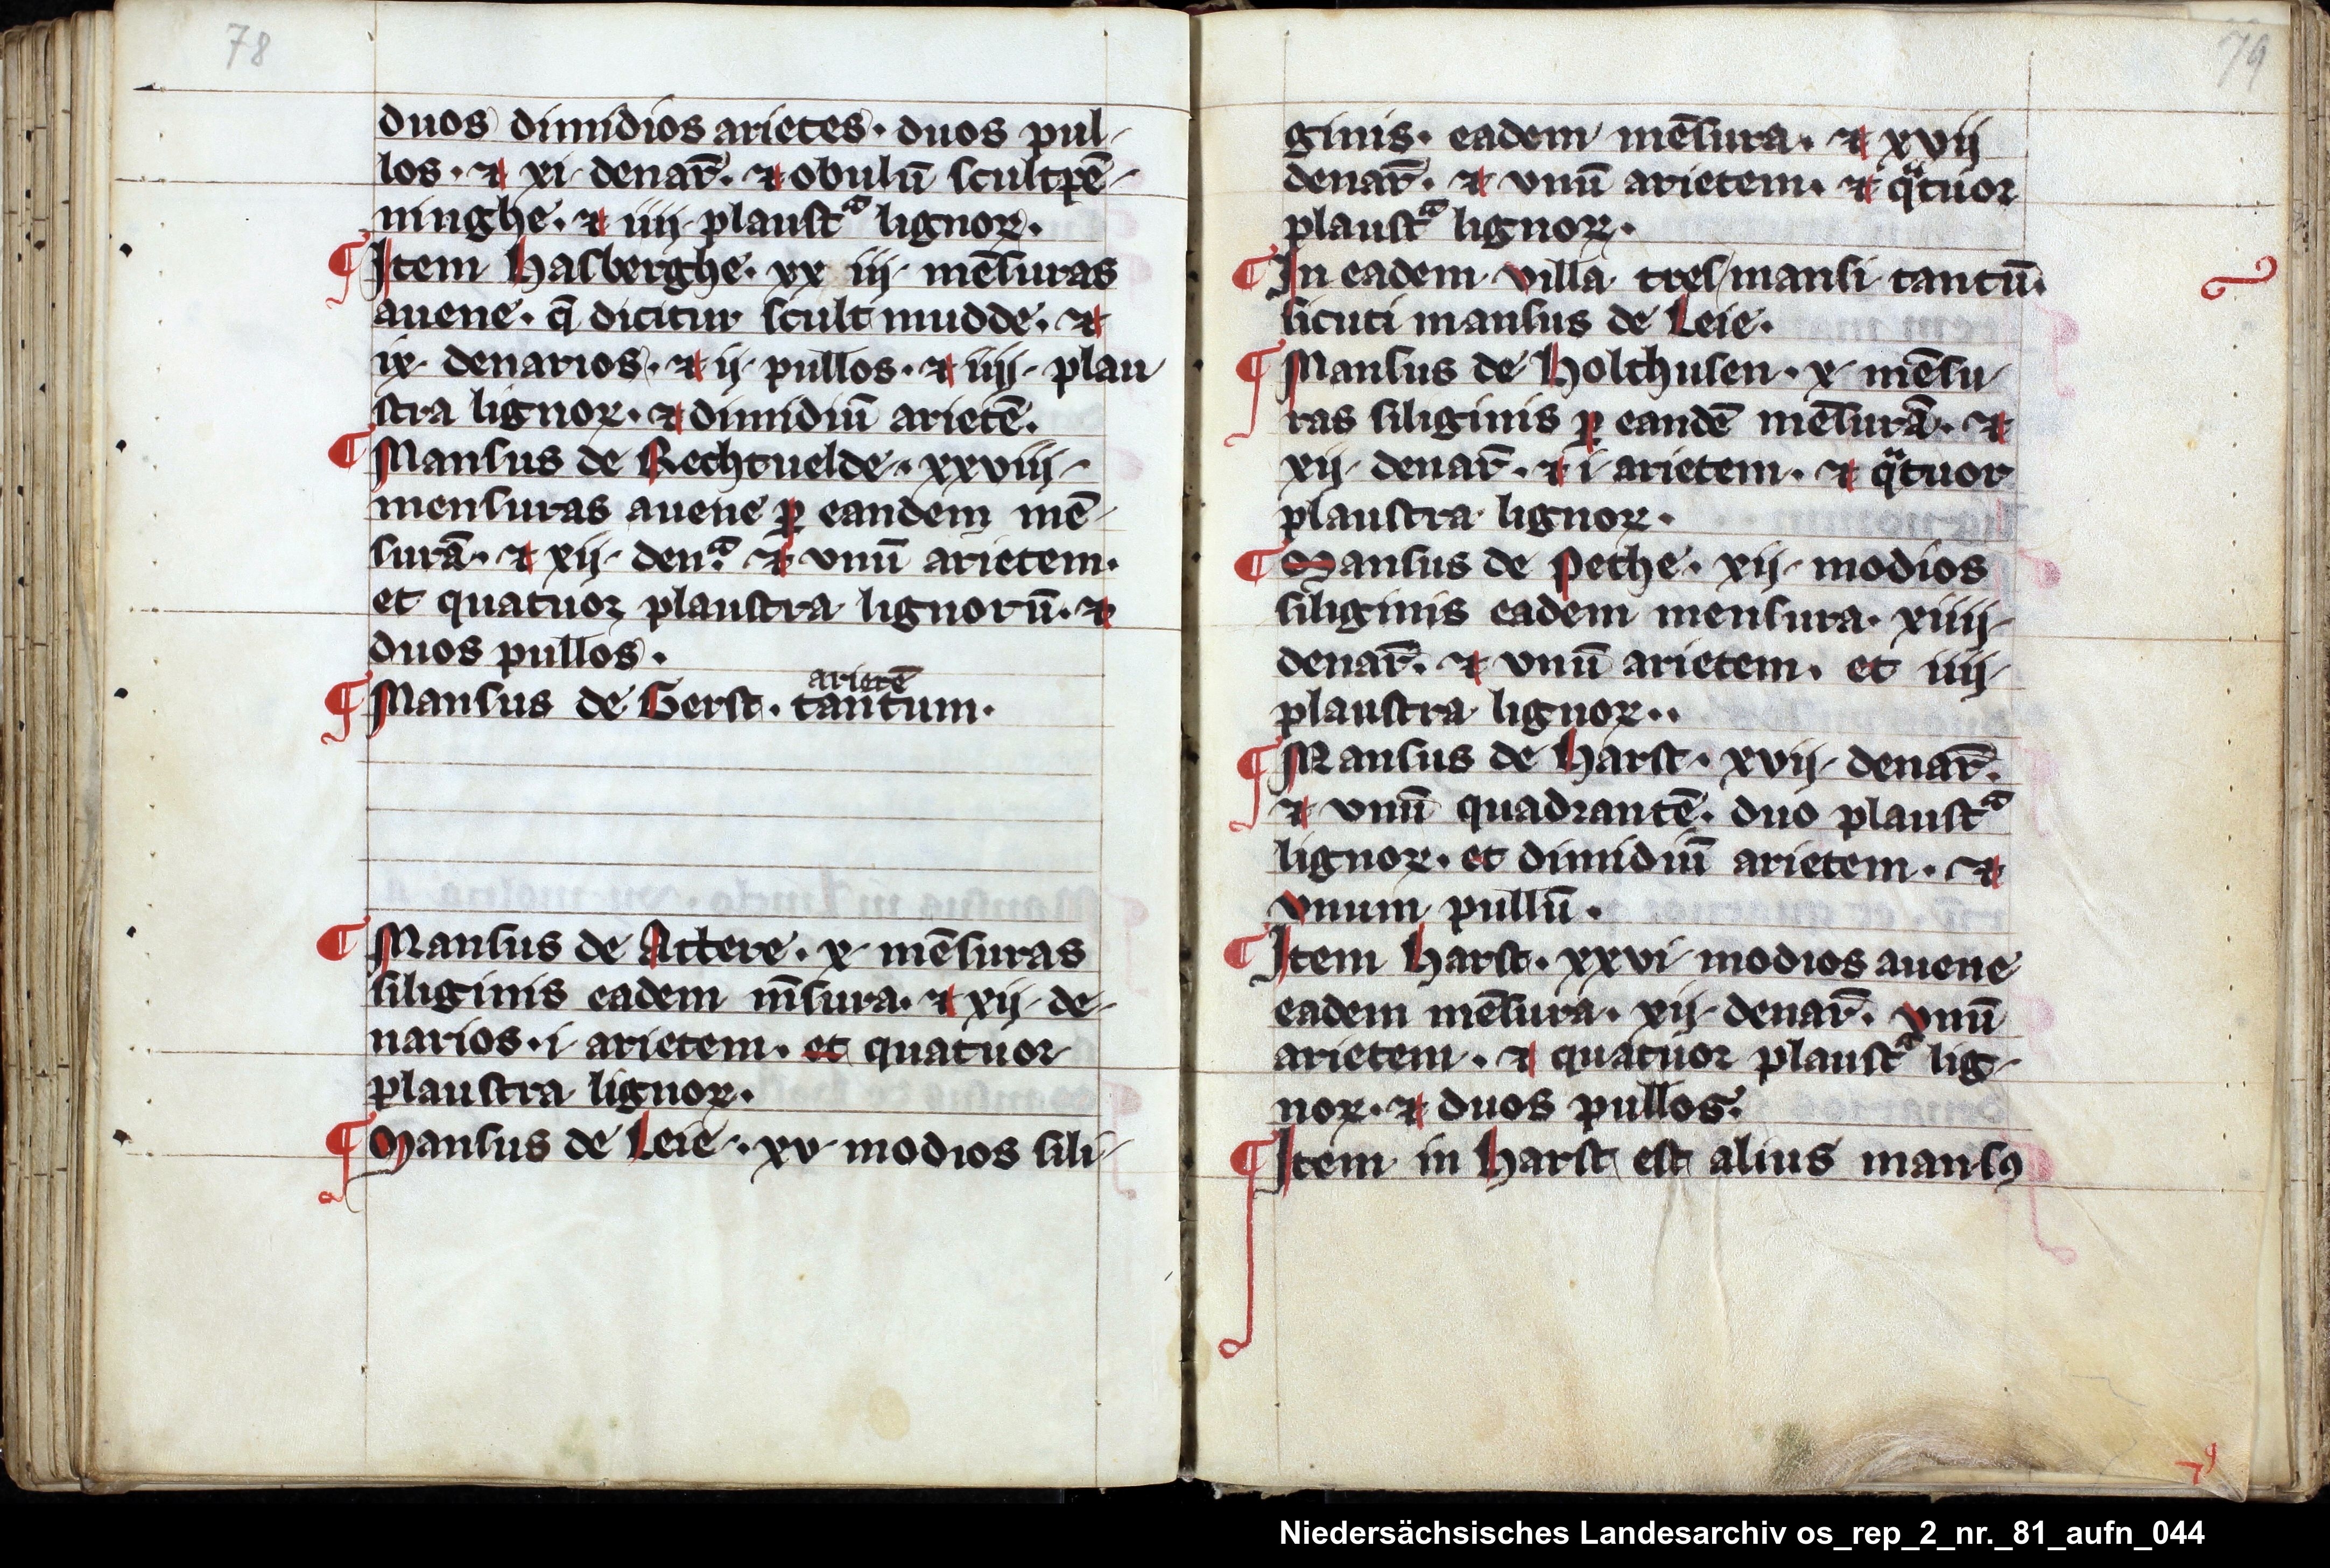 78
duos dimidios arietes · duos pul-
los · ⁊ xi · denar̄ · ⁊ obulū scultpē-
ninghe · ⁊ iiij · plaustᵃ lignoꝝ ·
¶ Item Halberghe · xx iij · mēsuras
auene · q̄ dicitur scult mudde · ⁊
ix · denarios · ⁊ ij · pullos · ⁊ iiij · plau
stra lignoꝝ · ⁊ dimidiū arietē ·
¶ Mansus de Rechtuelde · xxviij ·
mensuras auene ꝑ eandem mē-
surā · ⁊ xij · denᵃ · ⁊ vnū arietem ·
et quatuor plaustra lignorū · ⁊
duos pullos ·
arietē
¶ Mansus de Gerst · tantum ·
¶ Mansus de Actere · x · mēsuras
siliginis eadem m̄sura · ⁊ xij · de-
narios · i · arietem · et quatuor
plaustra lignoꝝ ·
¶ Mansus de Leie · xv · modios sili-
79
ginis · eadem mēsura · ⁊ xvij
denar̄ · ⁊ vnū arietem · ⁊ qᵃtuor
plaustᵃ lignoꝝ ·
¶ In eadem villa tres mansi tantū ·
sicuti mansus de Leie ·
¶ Mansus de Holthusen · x · mēsu-
ras siliginis ꝑ eandē mēsurā · ⁊
xij · denar̄ · ⁊ i · arietem · ⁊ qᵃtuor
plaustra lignoꝝ ·
¶ Mansus de Pethe · xij · modios
siliginis eadem mensura · xiiij ·
denar̄ · ⁊ vnū arietem · et iiij ·
plaustra lignoꝝ ·
¶ Mansus de Harst · xvij · denar̄ ·
⁊ vnū quadrantē · duo plaustᵃ
lignoꝝ · et dimidiū arietem · ⁊
vnum pullū ·
¶ Item Harst · xxvi · modios auene
eadem mēsura · xij · denar̄ · vnū
arietem · ⁊ quatuor plaustᵃ lig-
noꝝ · ⁊ duos pullos ·
¶ Item in Harst est alius mansꝰ
Niedersächsisches Landesarchiv os_rep_2_nr._81_aufn_044